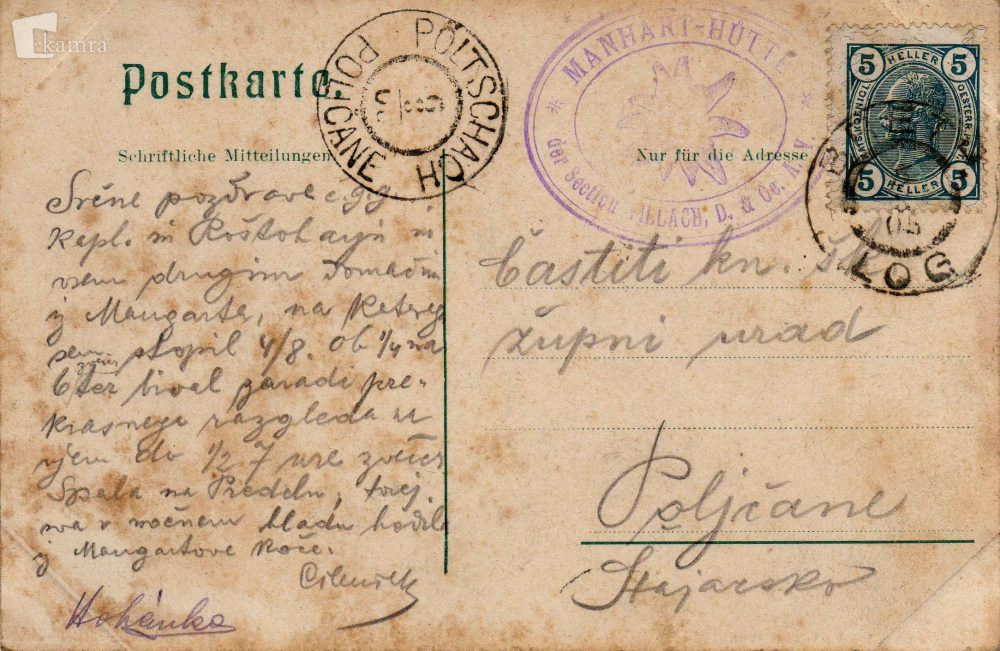 kamra
Postkarte
PÖLTSCHACH
POLIČANE
MANHART-HÜTTE
der Section VILLACH, D. & Oe. A. V.
5 HELLER 5
5 HELLER 5
LOG
Schriftliche Mitteilungen
Nur für die Adresse
Srčne pozdrave
kapl. in
vsem drugim domačim
z Mangarta, na katerega
sem stopil 4/8. ob 1/4 na
zvečer
bival zaradi pre-
krasnega razgleda na
njem do 1/2 7 ure zvečer
Spala na Predelu, torej
sva v nočnem hladu hodila
z Mangartove koče.
Hohánka
Častiti kn. šk.
župni urad
Poljčane
Štajarsko